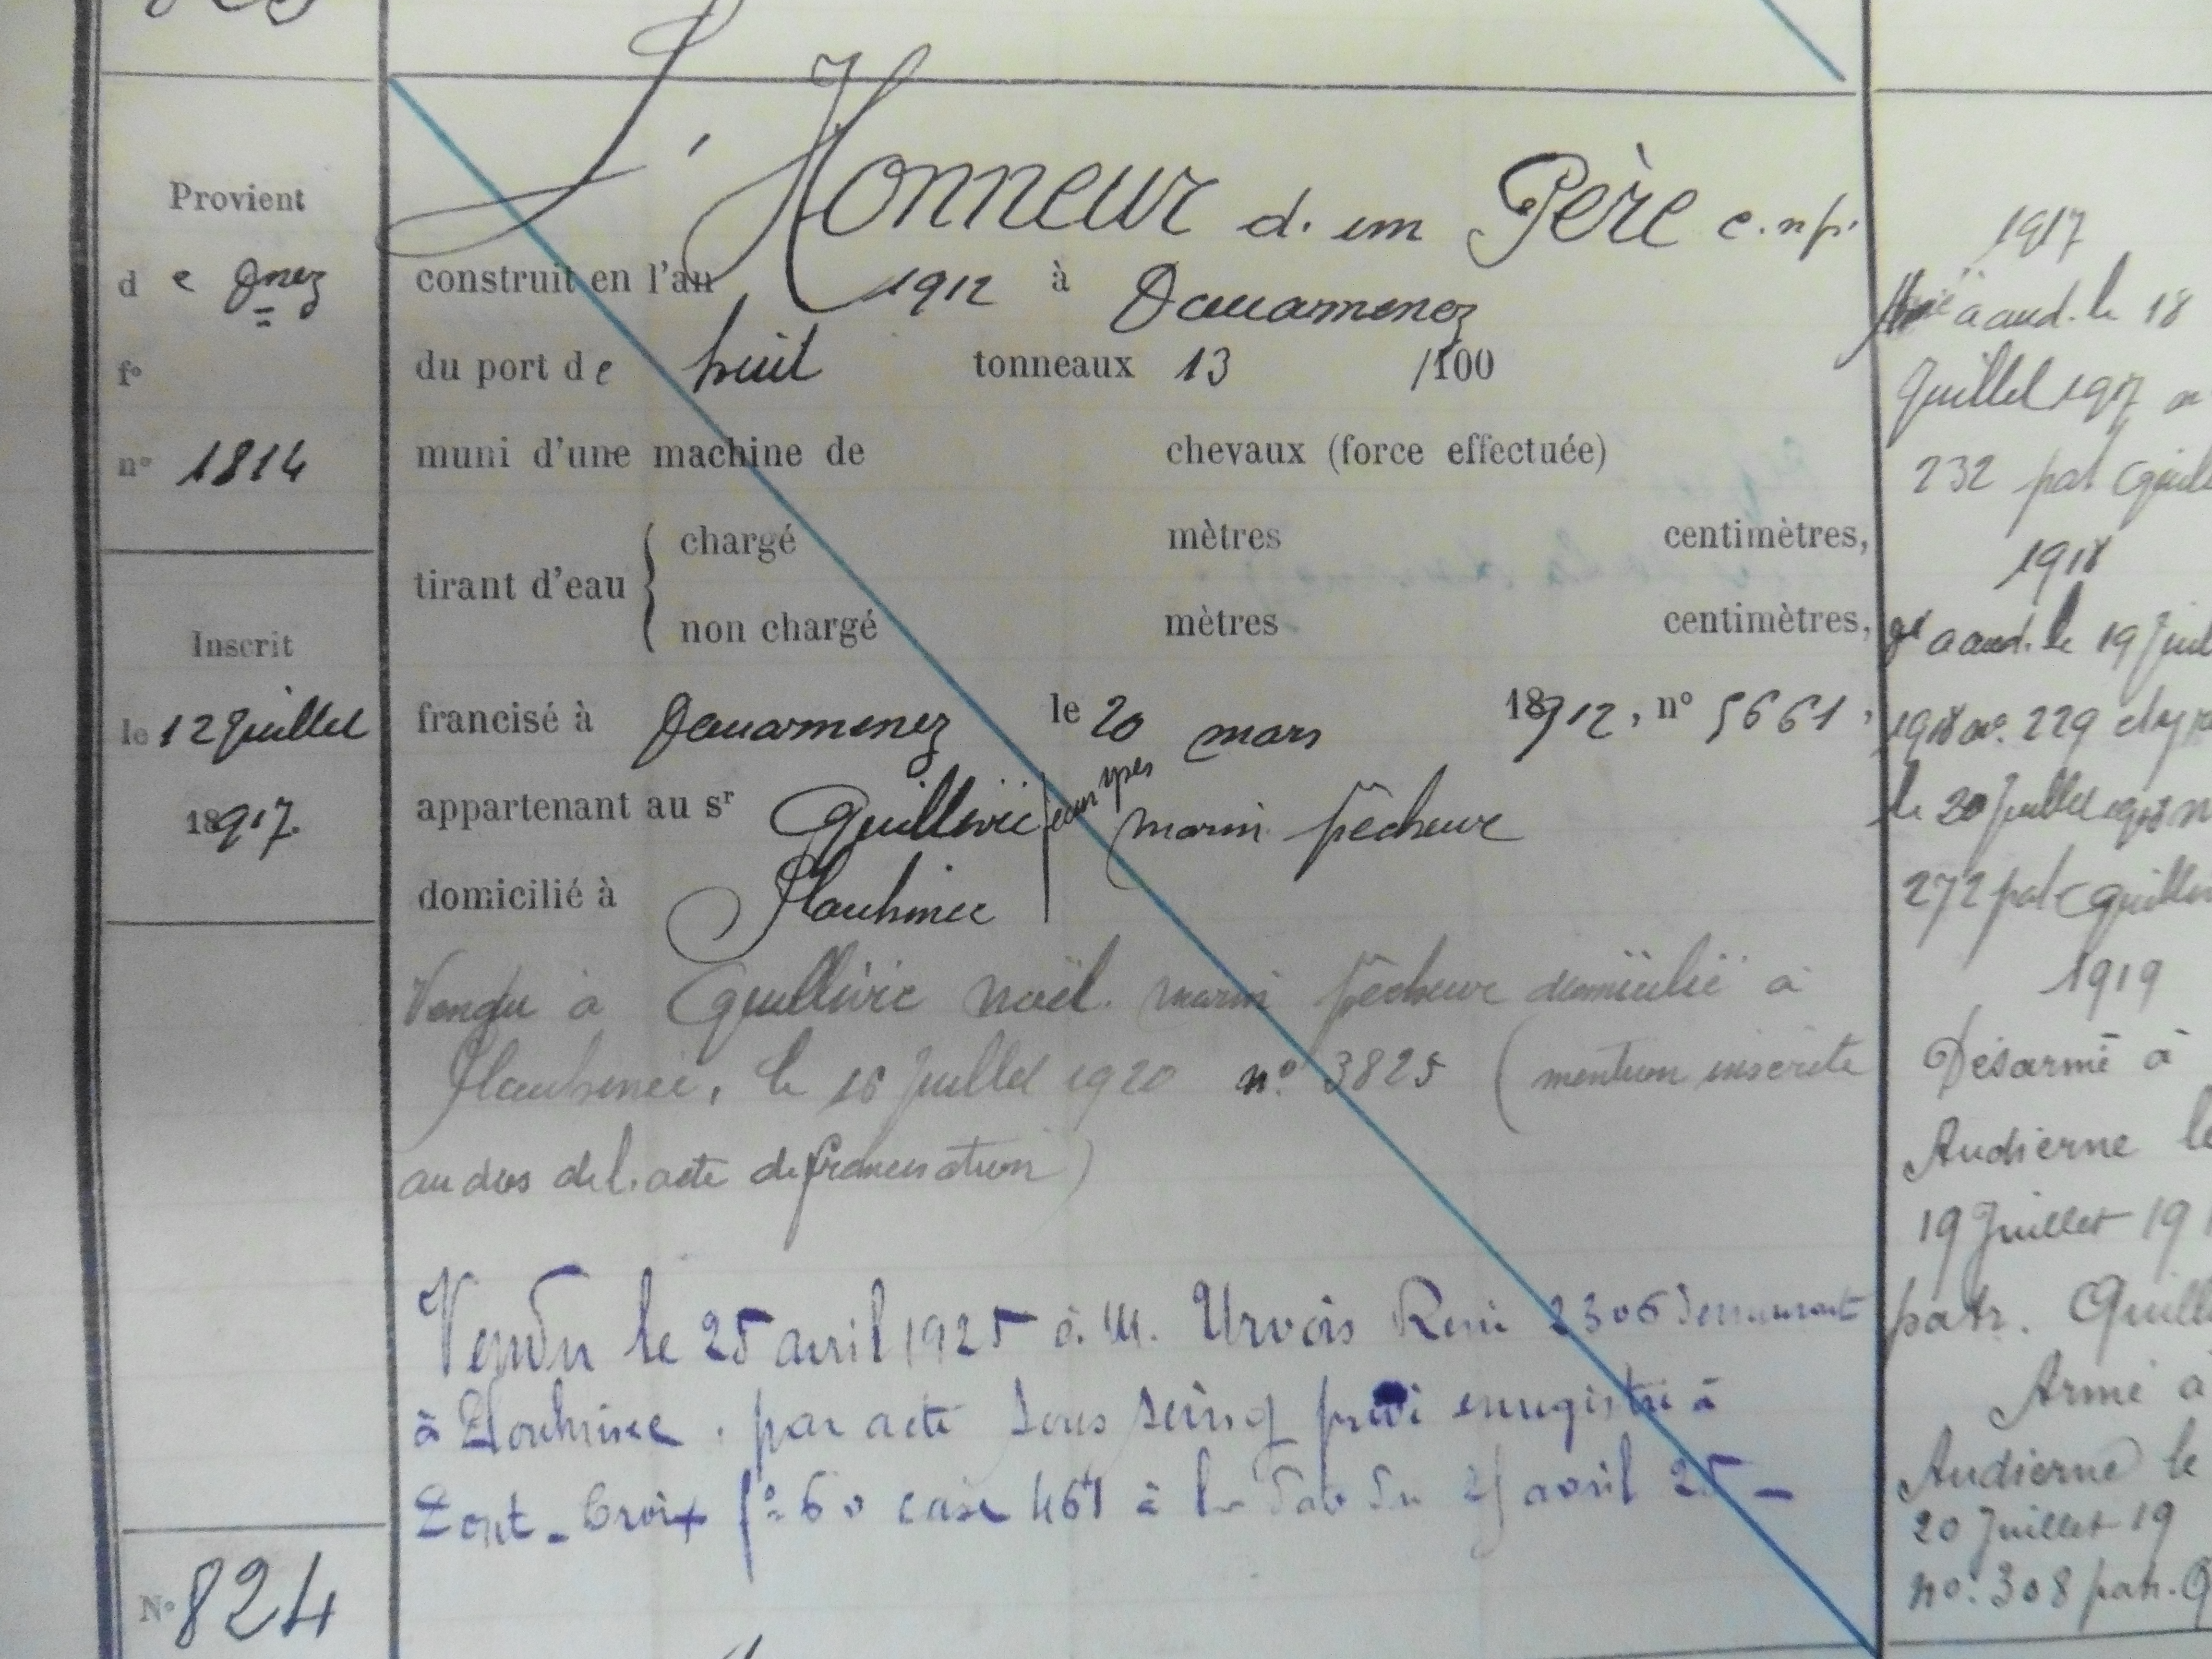 Provient
de Dnez
fo
no 1814
Inscrit
le 12 Juillet
1917.
No 824
L'Honneur d. un Père c.n.p.
construit en l'an 1912 à Douarnenez
du port de huit tonneaux 13 /100
muni d'une machine de chevaux (force effectuée)
tirant d'eau { chargé mètres centimètres,
non chargé mètres centimètres,
francisé à Douarnenez le 20 mars 1912, no 5661,
appartenant au sr Guillivic Jean Yves marin pêcheur
domicilié à Plouhinec
Vendu à Guillivic Noël. marin pêcheur domicilié à
Plouhinec, le 16 Juillet 1920 no. 3825 (mention inscrite
au dos de l. acte de francisation)
Vendu le 25 avril 1925 à M. Urvois René 2306 demeurant
à Plouhinec. par acte sous seing privé enregistré à
Pont-Croix fo 60 case 461 à la date du 25 avril 25 -
1917
a aud. le 18
Juillet 1917 no
232 pat Guill
1918
a aud. le 19 Juil
1918 no. 229
le 20 Juillet 1918 n
272 pat Guillin
1919
Désarmé à
Audierne le
19 Juillet 19
patr. Guill
Armé à
Audierne le
20 Juillet 19
no. 308 patr. G